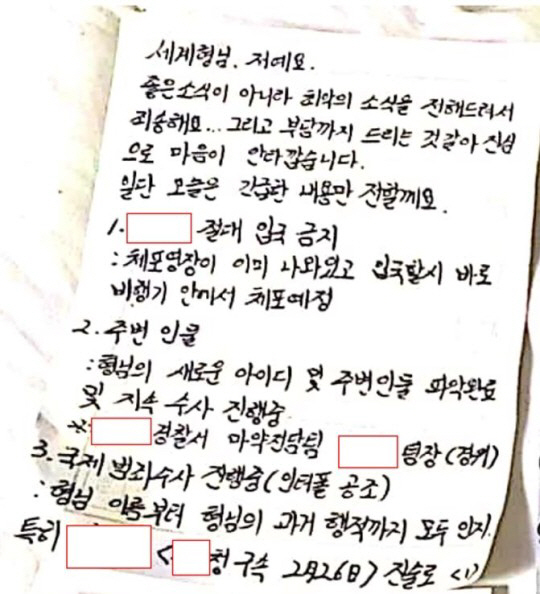 세계형님. 저예요.
좋은소식이 아니라 최악의 소식을 전해드려서
죄송해요... 그리고 부담까지 드리는 것 같아 진심
으로 마음이 안타깝습니다.
일단 오늘은 긴급한 내용만 전할께요.
1. 절대 입국 금지
: 체포영장이 이미 나와있고 입국할시 바로
비행기 안에서 체포예정
2. 주변 인물
: 형님의 새로운 아이디 및 주변인들 파악완료
및 지속 수사 진행중
※ 경찰서 마약전담팀 팀장(경위)
3. 국제 범죄수사 진행중(인터폴 공조)
: 형님 이름부터 형님의 과거 행적까지 모두 인지.
특히 < 청 구속 2月26日> 진술로 <1>